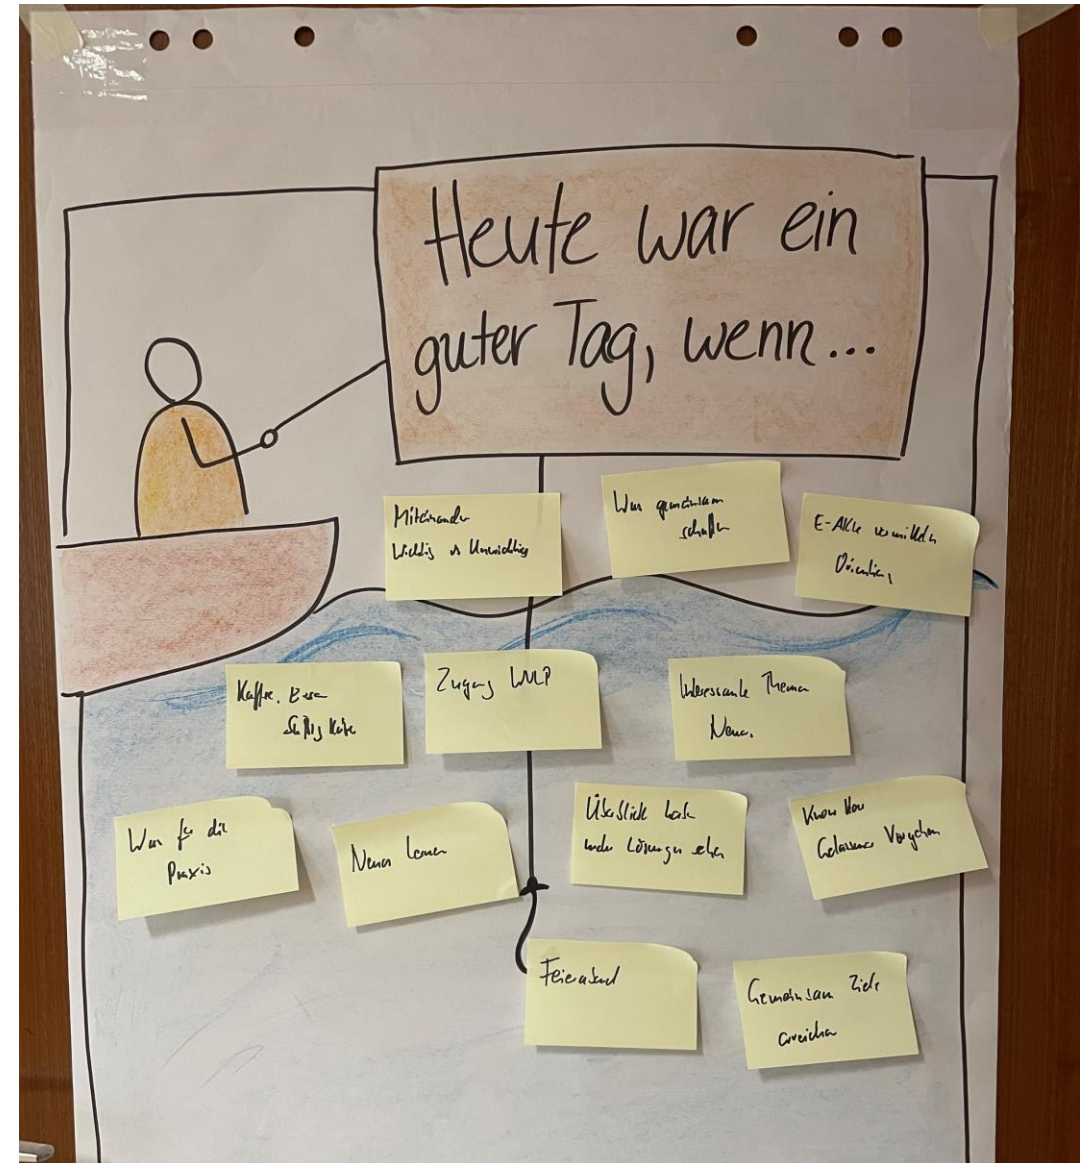 Heute war ein
guter Tag, wenn...
Miteinander
Wichtig vs Unwichtig
Was gemeinsam
schaffen
E-Akte vermitteln
Kaffee,
Zugang
Interessante Themen
Neues
Was für die
Praxis
Neues lernen
Überblick
Lösungen sehen
Know How
Vorgehen
Feierabend
Gemeinsam Ziele
erreichen